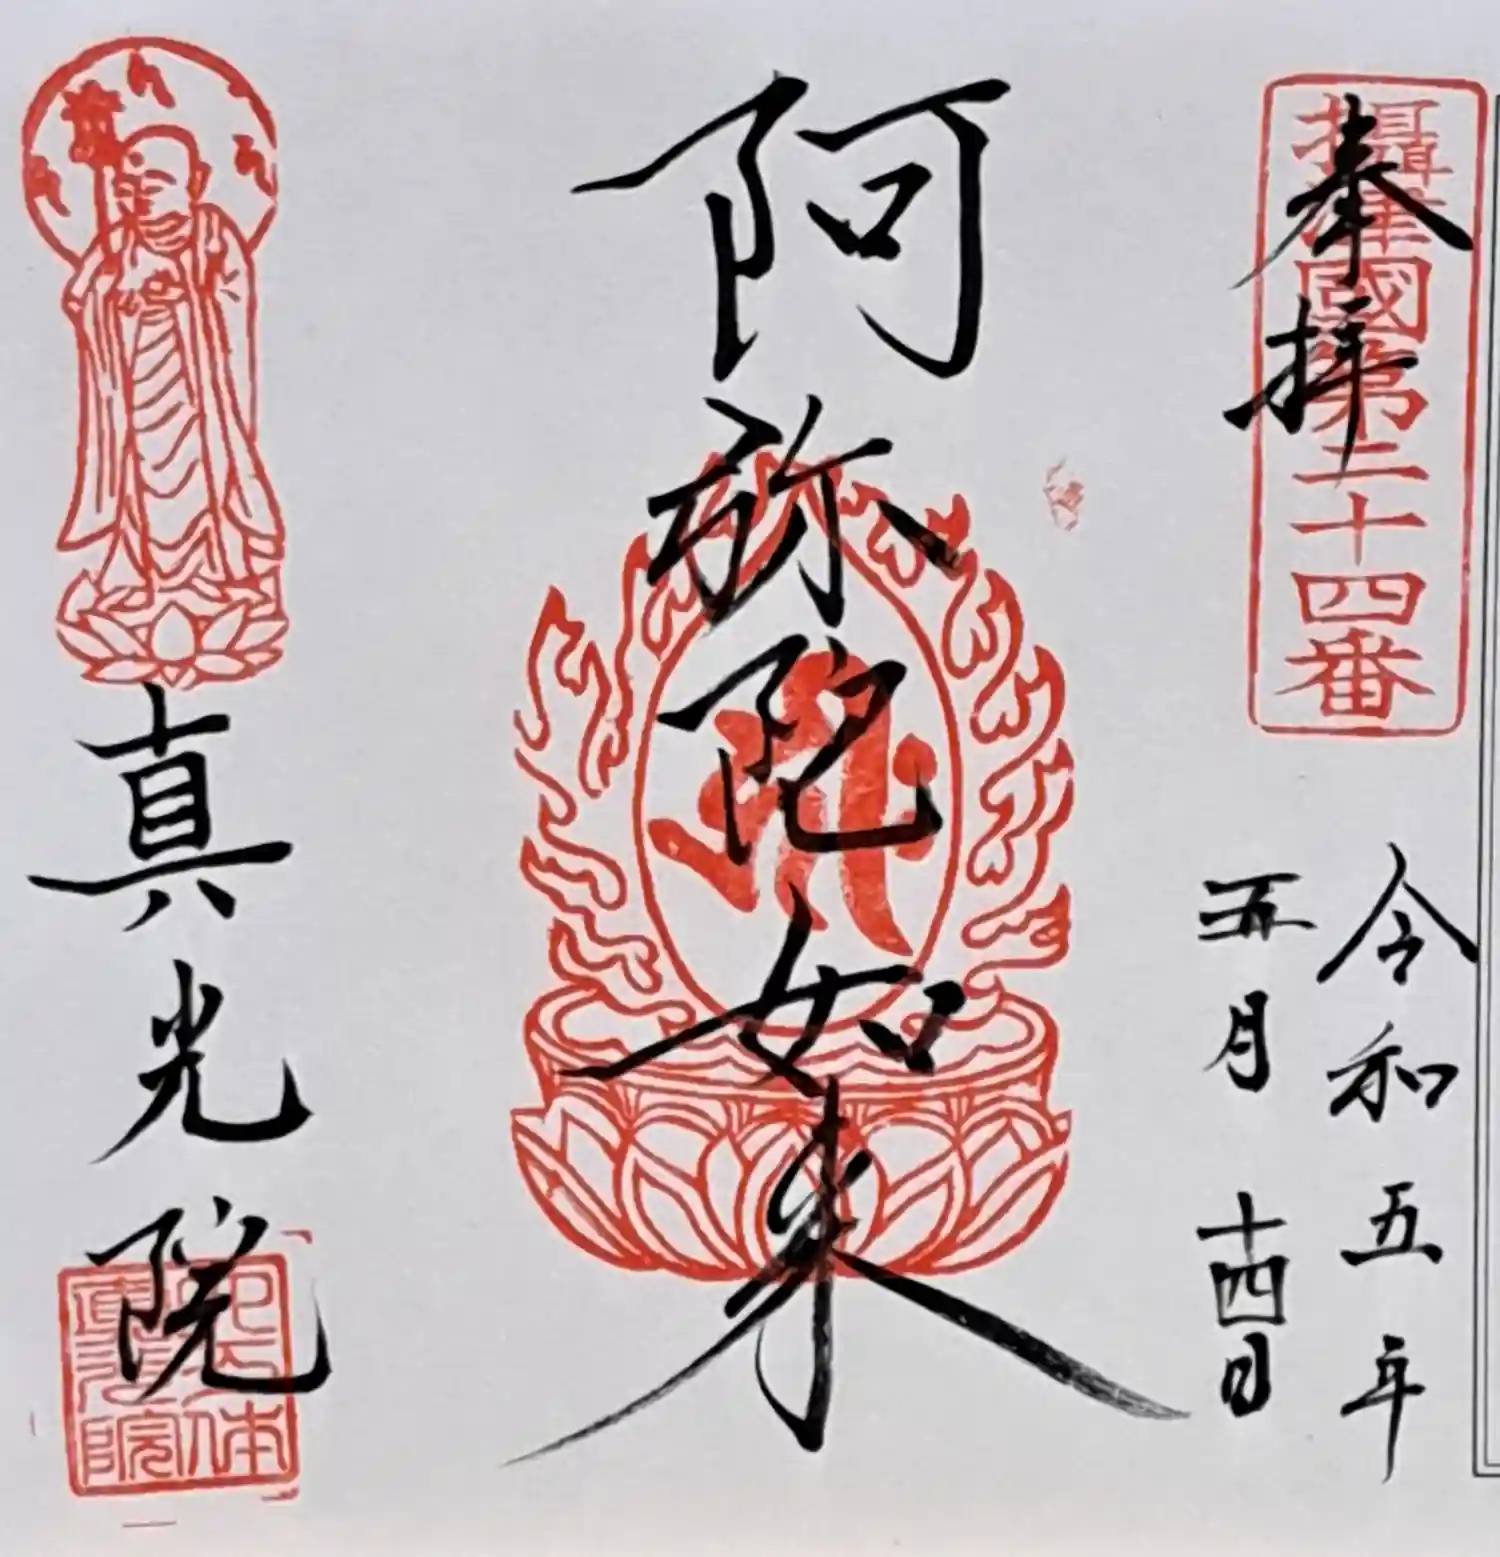 攝津國第二十四番
奉拝
令和五年
五月十四日
阿弥陀如来
真光院